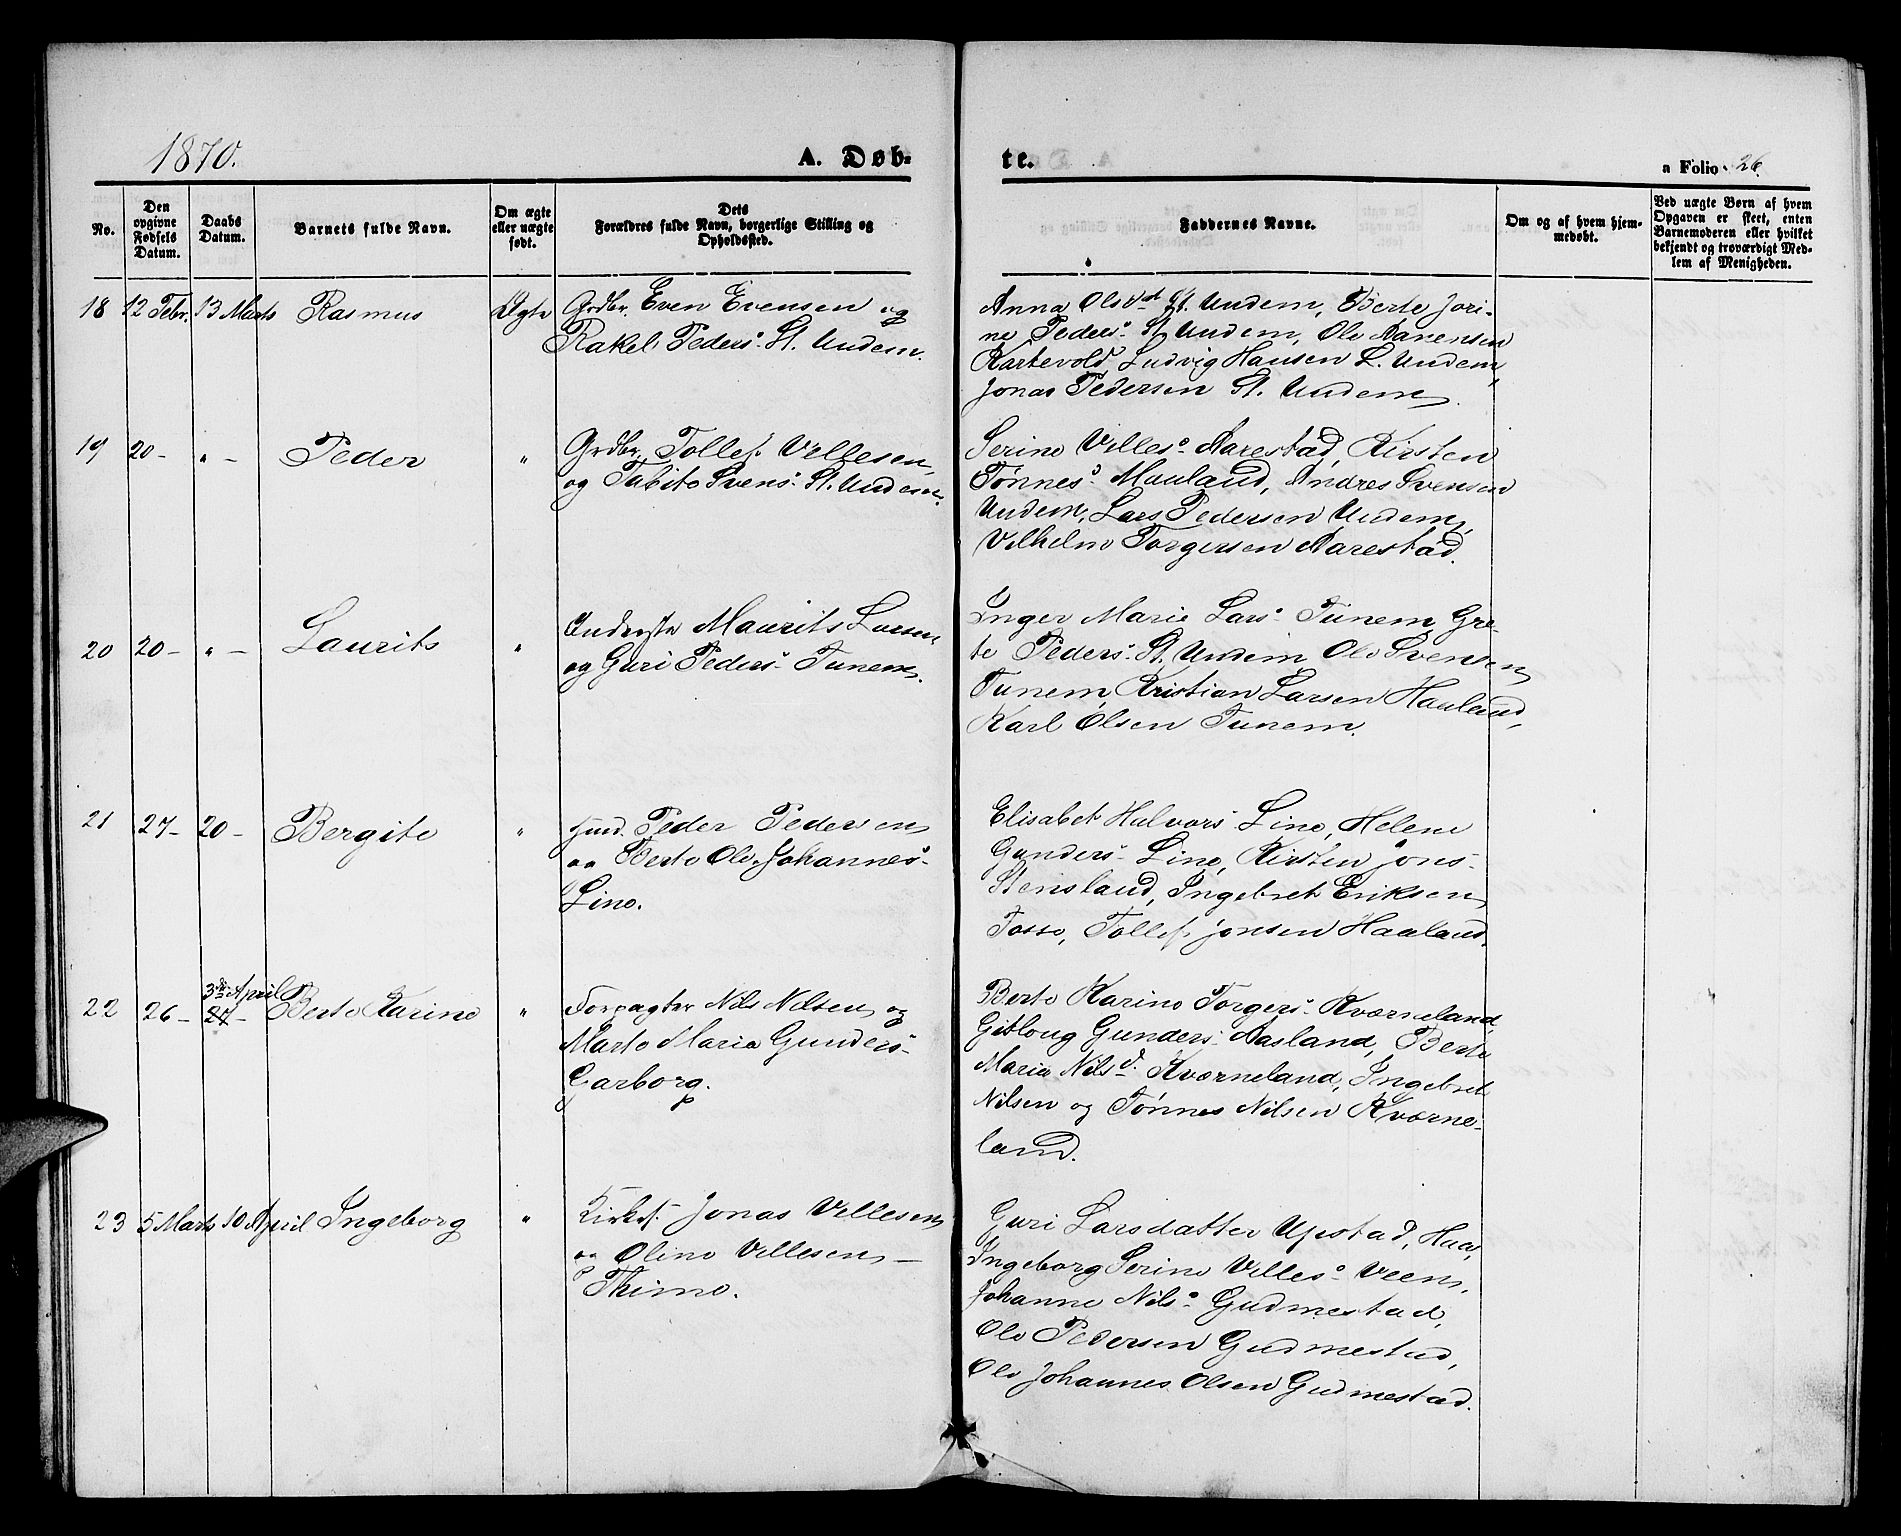 1870.
A. Døb-
te.
a Folio 26.
No.
Den opgivne Fødsels Datum.
Daabs Datum.
Barnets fulde Navn.
Om ægte eller uægte født.
Dets Forældres fulde Navn, borgerlige Stilling og Opholdssted.
Faddernes Navne.
Om og af hvem hjem-
medøbt.
Ved uægte Børn af hvem
Opgaven er skeet, enten
Barnemoderen eller hvilket
bekjendt og troværdigt Med-
lem af Menigheden.
18 12 Febr. 13 Marts Rasmus Ægte Grdbr. Even Evensen og
Rakel Peders. St. Undem.
Anna Olsdt St. Undem, Berte Jori-
ne Peders. St Undem, Ole Aanensen
Kartevold, Ludvig Hansen L. Undem,
Jonas Pedersen St. Undem.
19 20 - " - Peder " Grdbr. Tollef Villesen
og Tabite Svens. St. Undem.
Serine Villes. Aarestad, Kirsten
Tønnes. Mauland, Andres Svensen
Undem, Lars Pedersen Undem,
Vilhelm Torgersen Aarestad.
20 20 - " - Laurits " Inderste Maurits Larsen
og Guri Peders. Tunem.
Inger Marie Lars. Tunem, Gre-
te Peders. St. Undem, Ole Svensen
Tunem, Kristian Larsen Haaland,
Karl Olsen Tunem.
21 27 - 20 - Bergite " Peder Pedersen
og Berte Ole Johannes.
Line.
Elisabet Halvors. Line, Helene
Gunders. Line, Kirsten Jons.
Stensland, Ingebret Eriksen
Tosse, Tollef Jonsen Haaland.
22 26 - 3die April 27 - Berte Karine " Forpagter Nils Nilsen og
Marte Maria Gunders.
Garborg.
Berte Karine Torgers. Kværneland,
Gitloug Gunders. Aasland, Berte
Maria Nilsd. Kværneland, Ingebret
Nilsen og Tønnes Nilsen Kværne-
land.
23 5 Marts 10 April Ingeborg " Kirkes. Jonas Villesen
og Oline Villesen -
Thime.
Guri Larsdatter Upstad, Haa,
Ingeborg Serine Villes. Veen,
Johanne Nils. Gudmestad,
Ole Pedersen Gudmestad,
Ole Johannes Olsen Gudmestad.